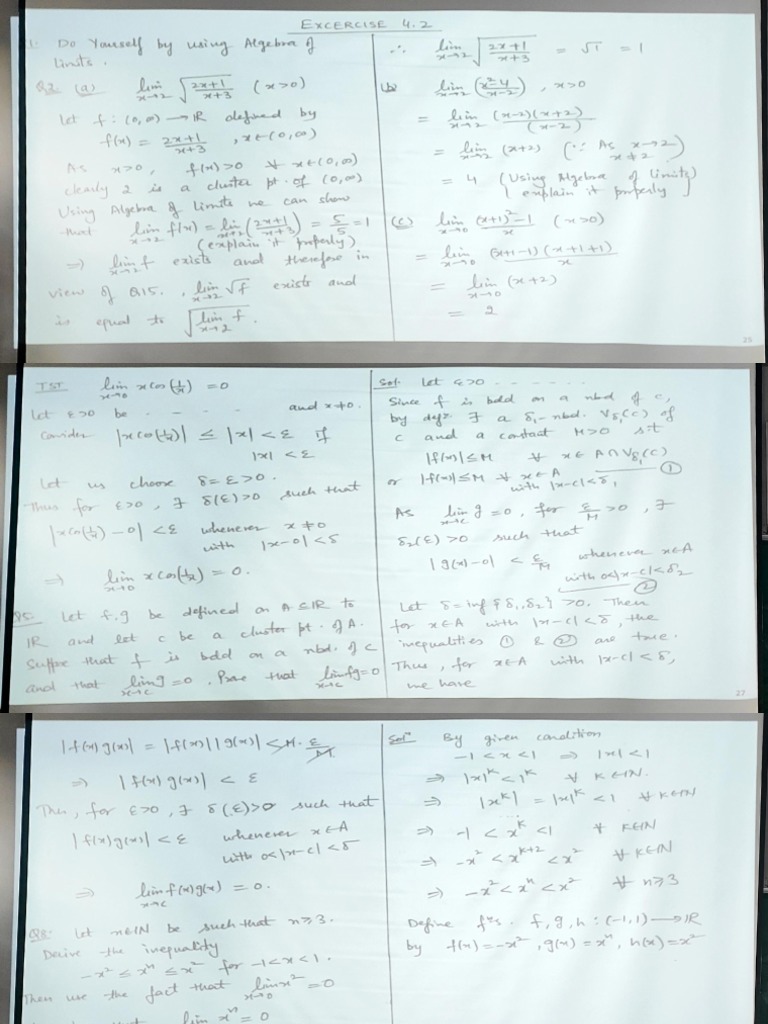 EXCERCISE 4.2
1. Do Yourself by using Algebra of
limits.
Q2. (a) lim x→2 √((2x+1)/(x+3)) (x>0)
Let f: (0,∞) → IR defined by
f(x) = (2x+1)/(x+3), x∈(0,∞)
As x>0, f(x)>0 ∀ x∈(0,∞)
clearly 2 is a cluster pt. of (0,∞)
Using Algebra of limits we can show
that lim x→2 f(x) = lim x→2 ((2x+1)/(x+3)) = 5/5 = 1
(explain it properly)
⇒ lim x→2 f exists and therefore in
view of Q15., lim x→2 √f exists and
is equal to √(lim x→2 f).
∴ lim x→2 √((2x+1)/(x+3)) = √1 = 1
(b) lim x→2 ((x²-4)/(x-2)), x>0
= lim x→2 (x-2)(x+2)/(x-2)
= lim x→2 (x+2) (∵ As x→2, x≠2)
= 4 (Using Algebra of limits)
(explain it properly)
(c) lim x→0 ((x+1)²-1)/x (x>0)
= lim x→0 (x+1-1)(x+1+1)/x
= lim x→0 (x+2)
= 2
25
TST lim x→0 x cos(1/x) = 0
Let ε>0 be - - - - and x≠0.
Consider |x cos(1/x)| ≤ |x| < ε if
|x| < ε
Let us choose δ = ε > 0.
Thus for ε>0, ∃ δ(ε)>0 such that
|x cos(1/x) - 0| < ε whenever x≠0
with |x-0| < δ
⇒ lim x→0 x cos(1/x) = 0.
Q5. Let f, g be defined on A ⊆ IR to
IR and let c be a cluster pt. of A.
Suppose that f is bdd on a nbd. of c
and that lim x→c g = 0. Prove that lim x→c fg = 0
Sol. Let ε>0 - - - - - -
Since f is bdd on a nbd of c,
by defn ∃ a δ₁-nbd. Vδ₁(c) of
c and a constant M>0 s.t
|f(x)| ≤ M ∀ x ∈ A ∩ Vδ₁(c)
or |f(x)| ≤ M ∀ x∈A
with |x-c|<δ₁ ①
As lim x→c g = 0, for ε/M > 0, ∃
δ₂(ε) > 0 such that
|g(x)-0| < ε/M whenever x∈A
with 0<|x-c|<δ₂ ②
Let δ = inf{δ₁, δ₂} > 0. Then
for x∈A with |x-c|<δ, the
inequalities ① & ② are true.
Thus, for x∈A with |x-c|<δ,
we have
27
|f(x) g(x)| = |f(x)| |g(x)| < M. ε/M
⇒ |f(x) g(x)| < ε
Thus, for ε>0, ∃ δ(ε)>0 such that
|f(x) g(x)| < ε whenever x∈A
with 0<|x-c|<δ
⇒ lim x→c f(x) g(x) = 0.
Q8: Let n∈IN be such that n≥3.
Derive the inequality
-x² ≤ xⁿ ≤ x² for -1<x<1.
Then use the fact that lim x→0 x² = 0
lim xⁿ = 0
Solⁿ By given condition
-1 < x < 1 ⇒ |x| < 1
⇒ |x|ᵏ < 1ᵏ ∀ K∈IN.
⇒ |xᵏ| = |x|ᵏ < 1 ∀ K∈IN
⇒ -1 < xᵏ < 1 ∀ K∈IN
⇒ -x² < xᵏ⁺² < x² ∀ K∈IN
⇒ -x² < xⁿ < x² ∀ n≥3
Define fⁿs. f, g, h : (-1,1) → IR
by f(x) = -x², g(x) = xⁿ, h(x) = x²